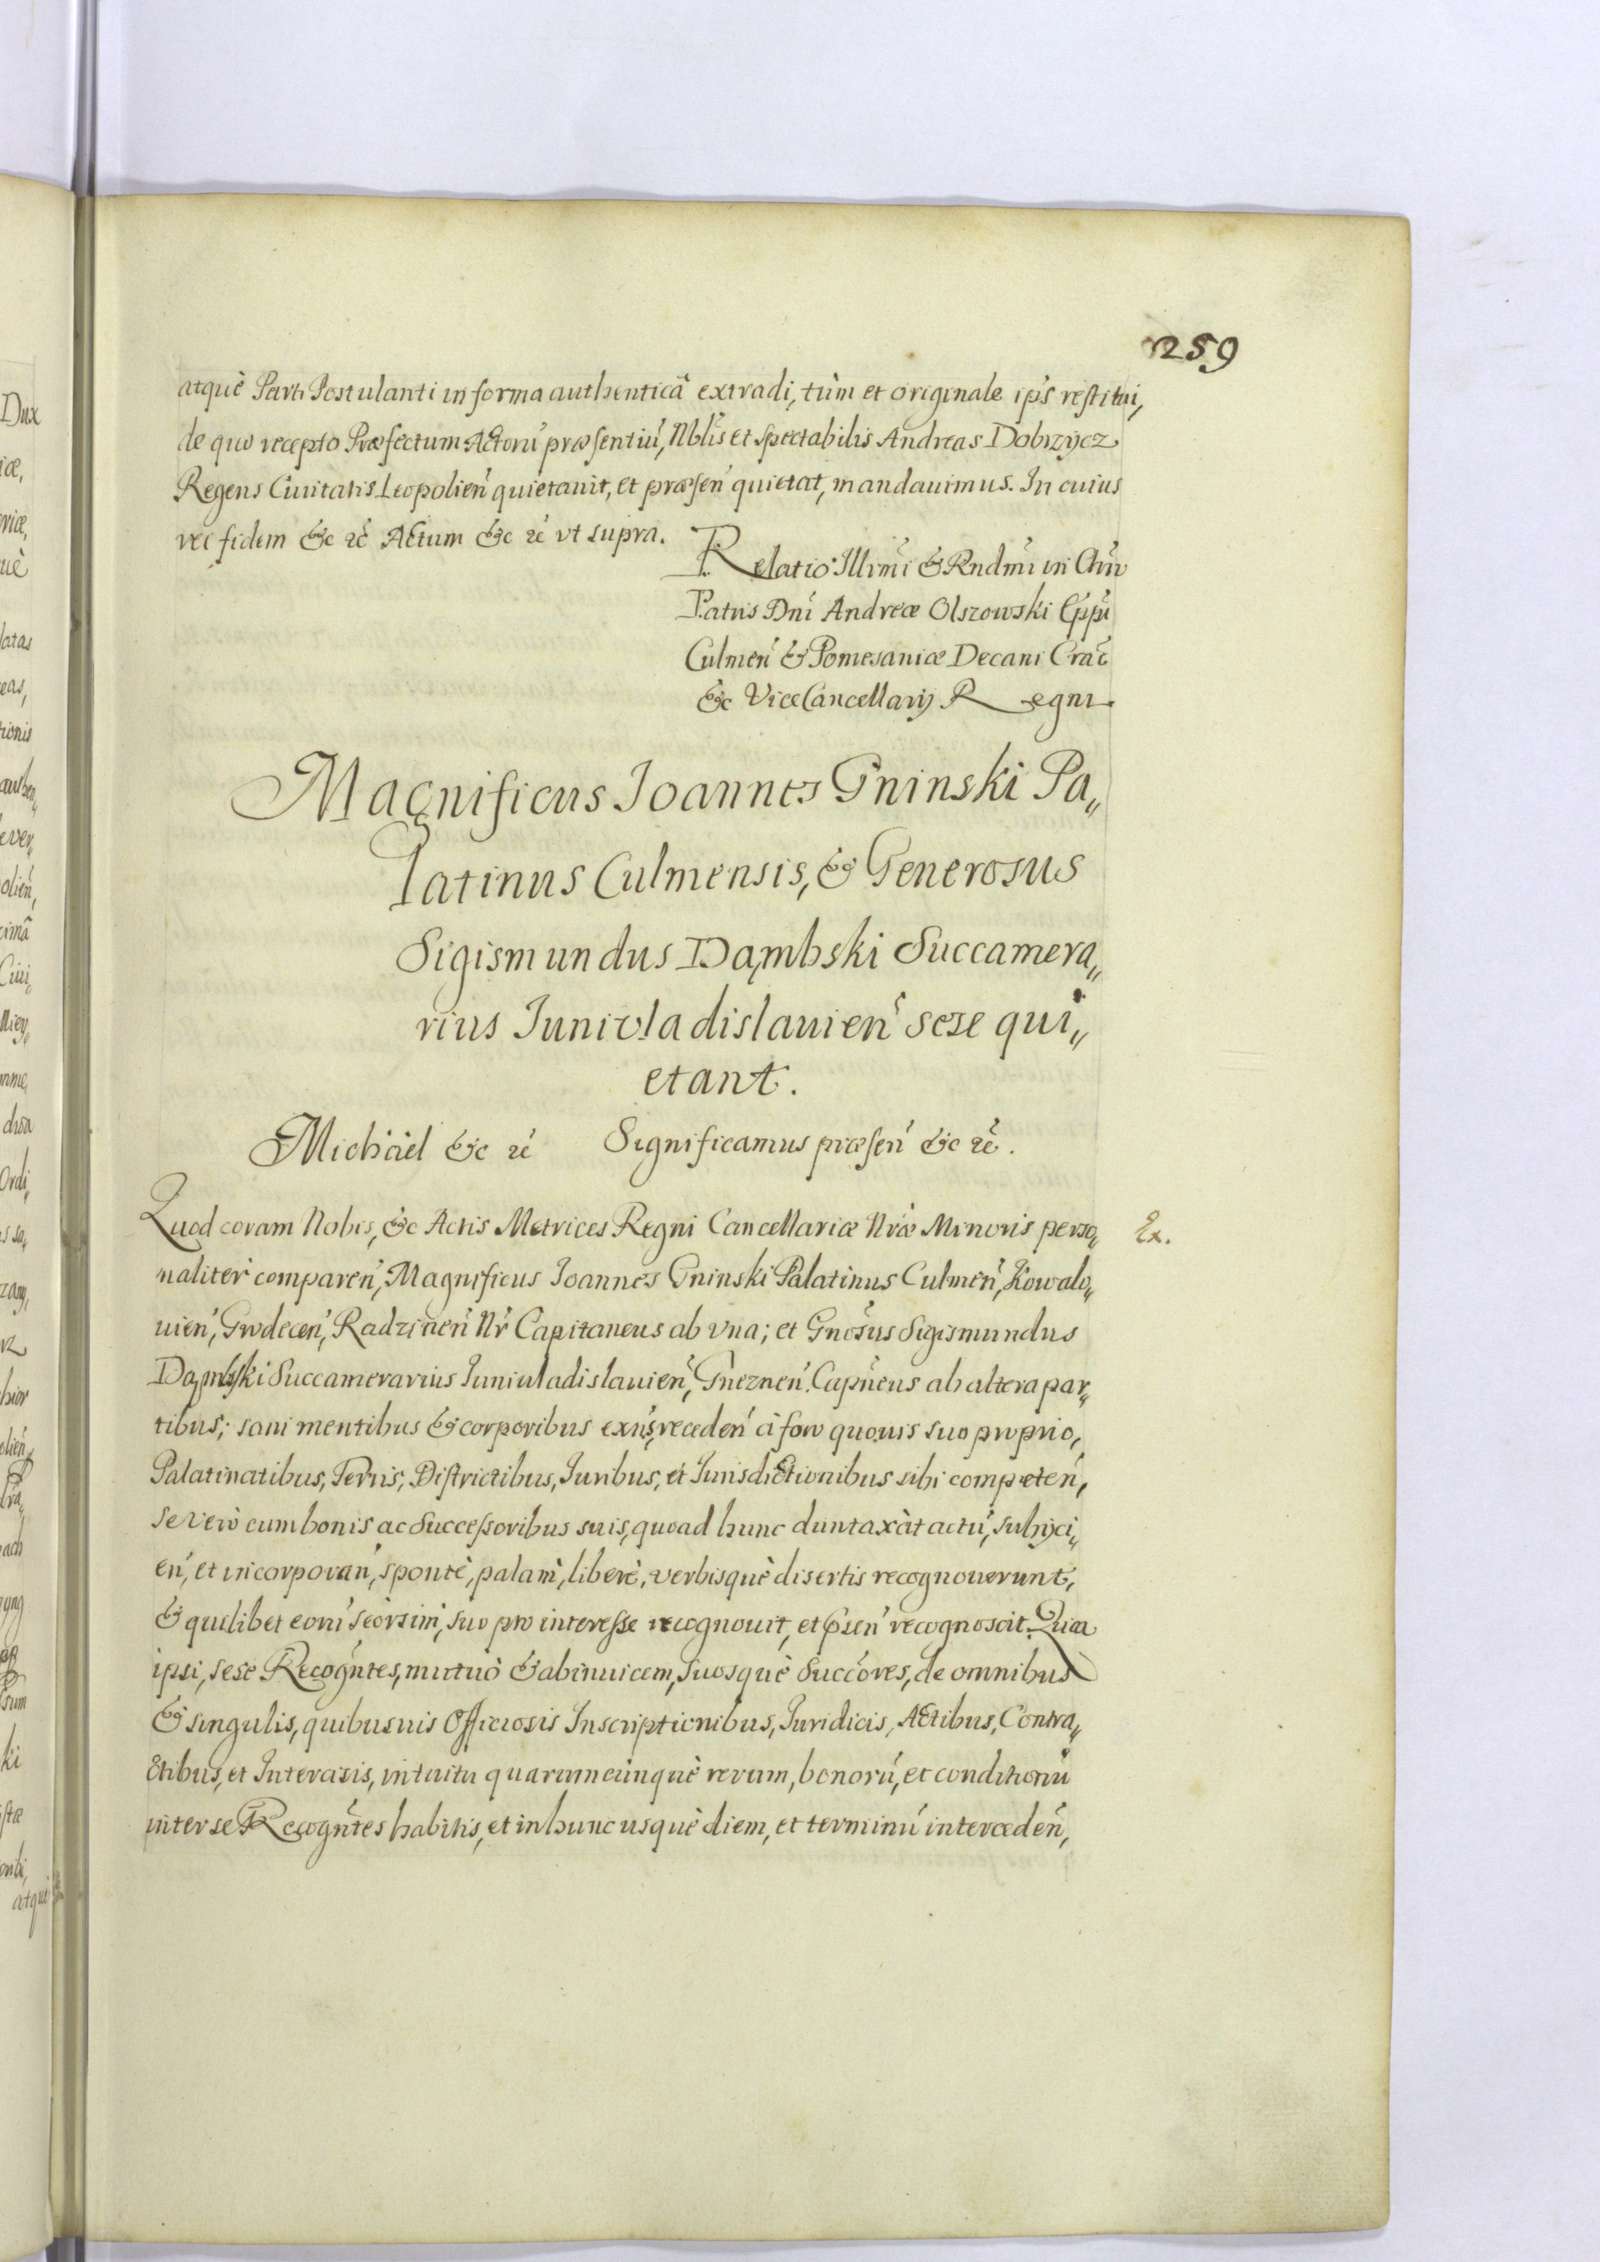 259
atquè Parti Postulanti in forma authenticâ extradi, tùm et originale ips restitui,
de quo recepto Præfectum Actorũ præsentiũ, Nblis et Spectabilis Andreas Dobrzycz
Regens Ciuitatis Leopolien quietauit, et præsen quietat, mandauimus. In cuius
rei fidem &c ac Actum &c ac vt supra.
Relatio Illmi & Rndmi in Chro
Patris Dni Andreæ Olszowski Eppi
Culmen & Pomesaniæ Decani Crac
&c ViceCancellarij Regni.
Magnificus Joannes Gninski Pa„
latinus Culmensis, & Generosus
Sigismundus Dąmbski Succamera„
rius Juniuladislauien sese qui„
etant.
Michäel &c ac Significamus præsen &c ac.
Quod coram Nobis, &c Actis Metrices Regni Cancellariæ Nræ Minoris perso„
Ex.
naliter comparen, Magnificus Joannes Gninski Palatinus Culmen, Kowalo„
uien, Grodecen, Radzinen Nr Capitaneus ab vna; et Gnosus Sigismundus
Dąmbski Succamerarius Juniuladislauien, Gneznen. Capneus ab altera par„
tibus; sani mentibus & corporibus exns, receden à foro quouis suo proprio,
Palatinatibus, Terris, Districtibus, Juribus, et Jurisdictionibus sibi competen,
se verò cum bonis ac Successoribus suis, quoad hunc duntaxàt actũ, subijci„
en, et incorporan, spontè, palam, liberè, verbisquè disertis recognouerunt,
& quilibet eorũ seorsim, suo pro interesse recognouit, et psen recognoscit. Quia
ipsi, sese Recogntes, mutuò & abinuicem, suosquè Succores, de omnibus
& singulis, quibusuis Officiosis Inscriptionibus, Juridicis, Actibus, Contra„
ctibus, et Intercisis, intuitu quarumcunquè rerum, bonorũ, et conditionũ
inter se Recogntes habitis, et in hunc usquè diem, et terminũ interceden,